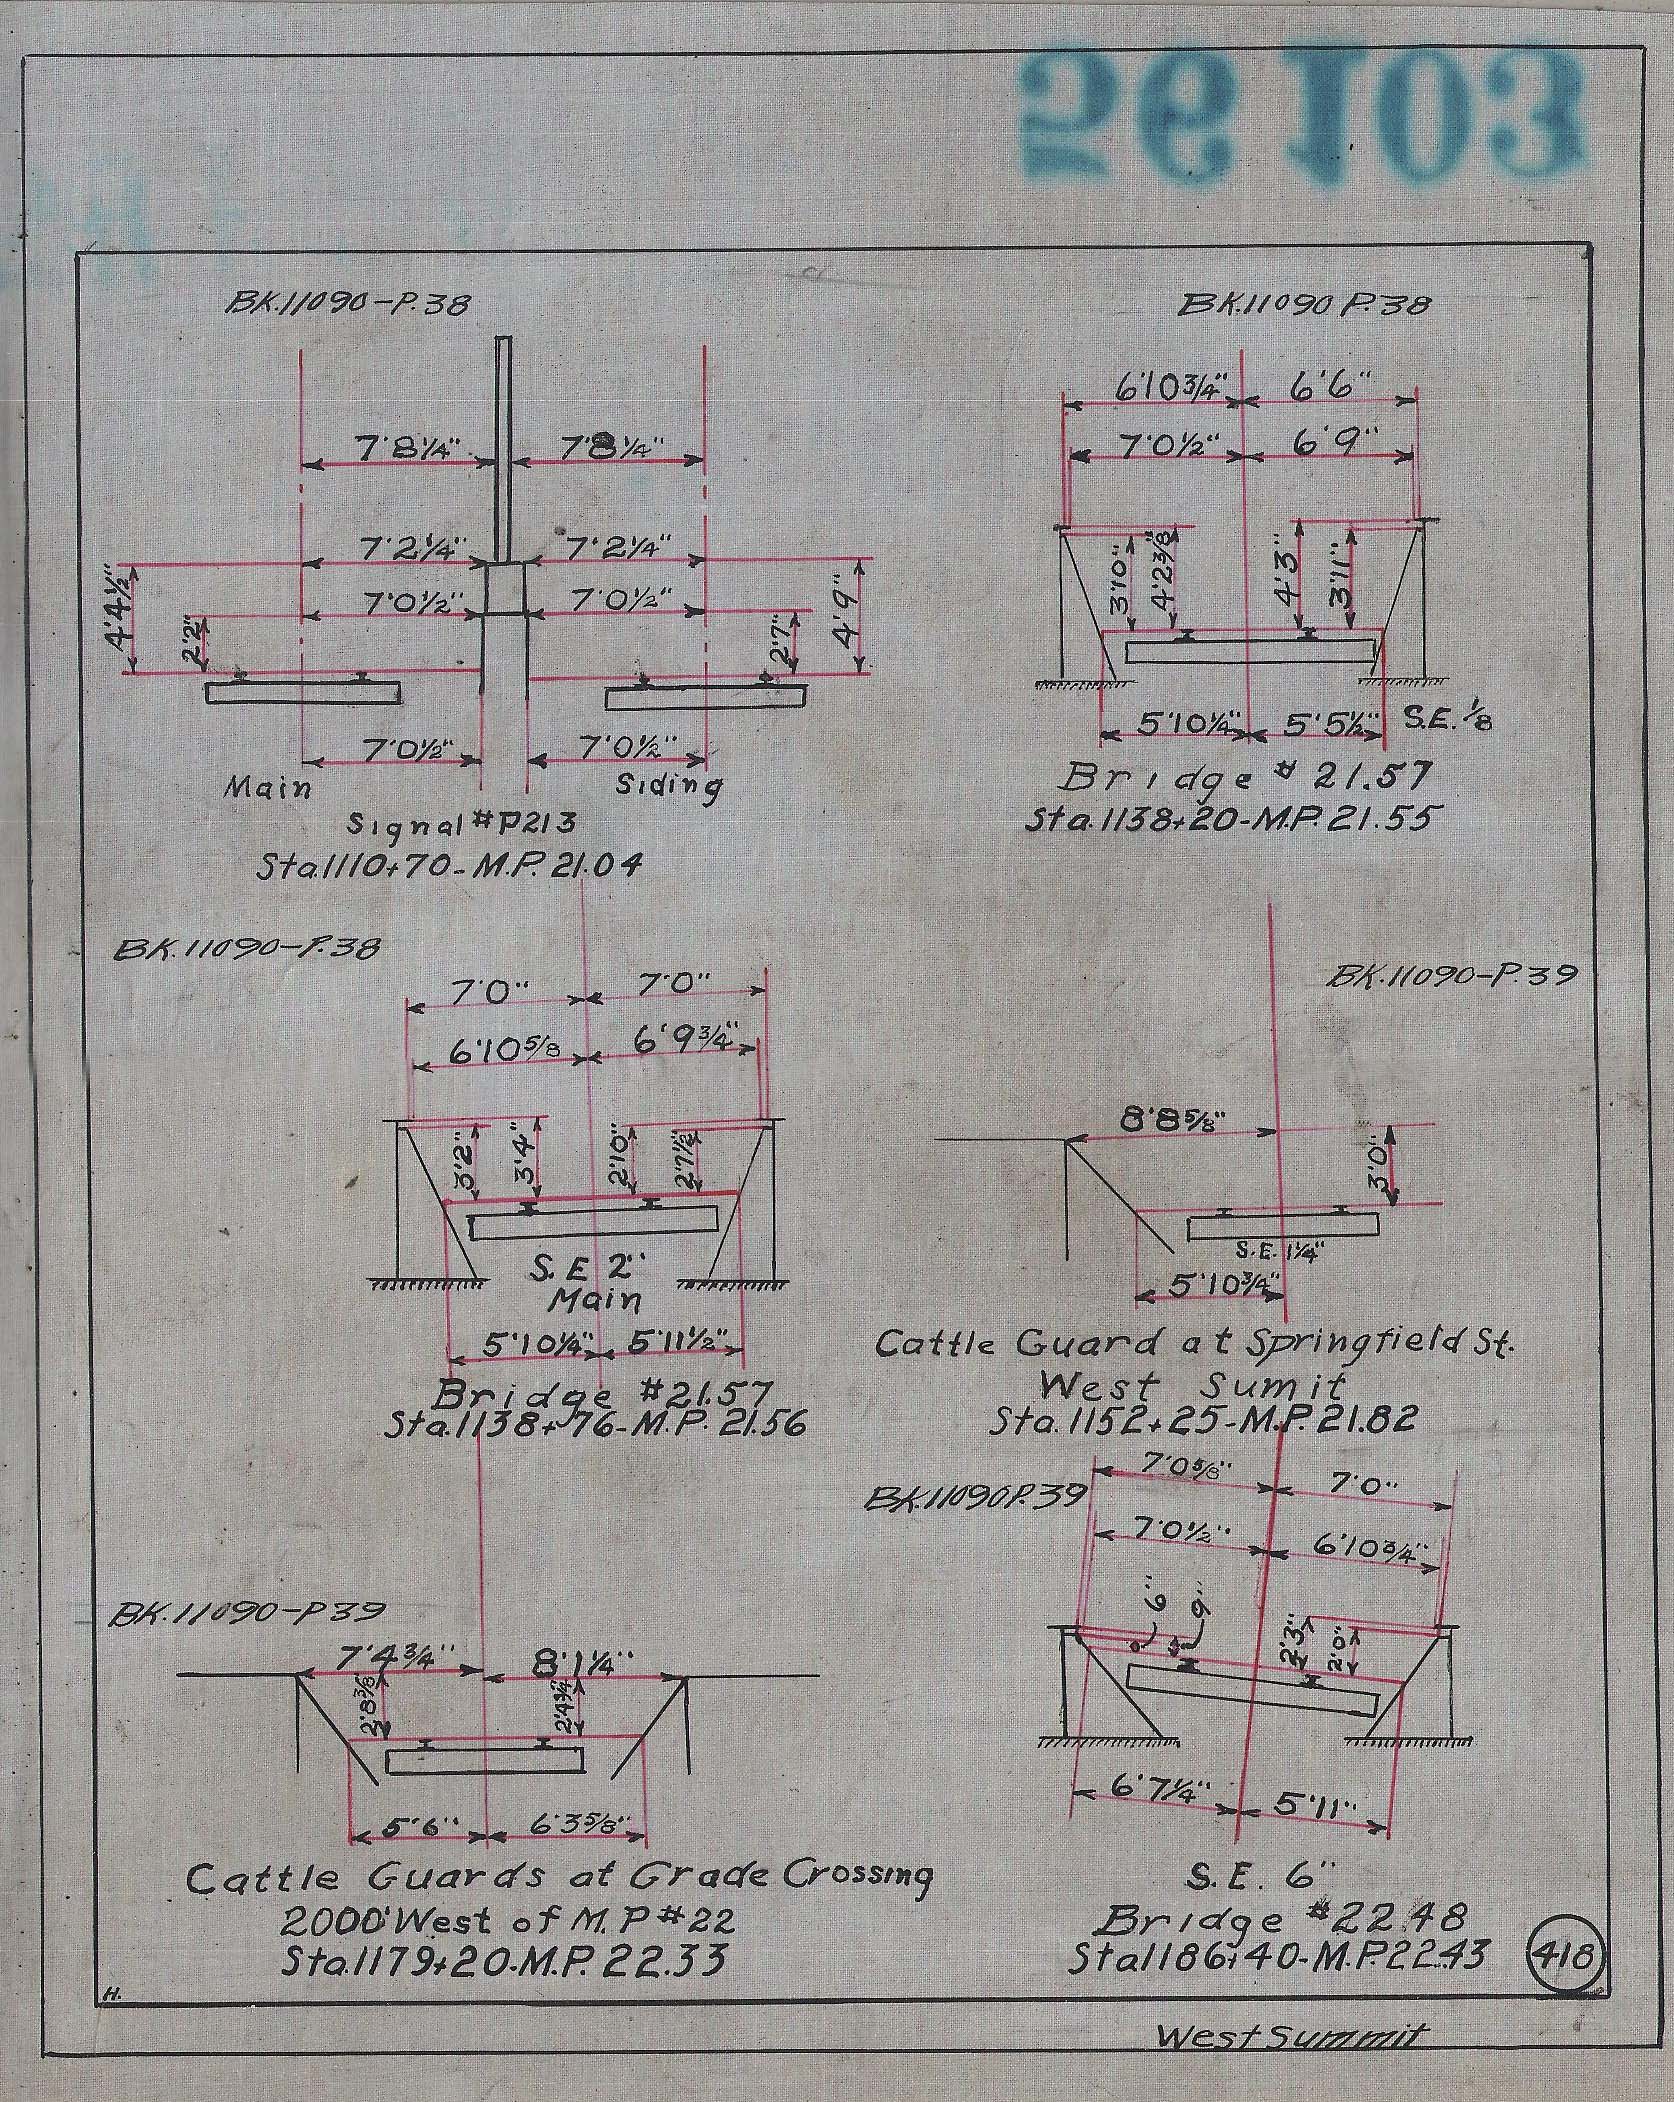 26103
BK.11090-P.38
7'8¼" 7'8¼"
7'2¼" 7'2¼"
7'0½" 7'0½"
4'4½" 2'2" 2'7" 4'9"
7'0½" 7'0½"
Main Siding
Signal #P213
Sta.1110+70-M.P. 21.04
BK.11090 P.38
6'10¾" 6'6"
7'0½" 6'9"
3'10" 4'2⅜" 4'3" 3'11"
5'10¼" 5'5½" S.E. ⅛
Bridge # 21.57
Sta.1138+20-M.P. 21.55
BK.11090-P.38
7'0" 7'0"
6'10⅝ 6'9¾"
3'2" 3'4" 2'10" 2'7½"
S.E 2"
Main
5'10¼" 5'11½"
Bridge #21.57
Sta.1138+76-M.P. 21.56
BK.11090-P.39
8'8⅝"
3'0"
S.E. 1¼"
5'10¾"
Cattle Guard at Springfield St.
West Sumit
Sta.1152+25-M.P. 21.82
BK.11090-P39
7'4¾" 8'1¼"
2'8⅜ 2'4¾"
5'6" 6'3⅝"
Cattle Guards at Grade Crossing
2000' West of M.P #22
Sta.1179+20-M.P. 22.33
BK.11090P.39
7'0⅝" 7'0"
7'0½" 6'10¾"
6" 9" 2'3" 2'0"
6'7¼" 5'11"
S.E. 6"
Bridge #22.48
Sta1186+40-M.P.22.43
418
H.
West Summit